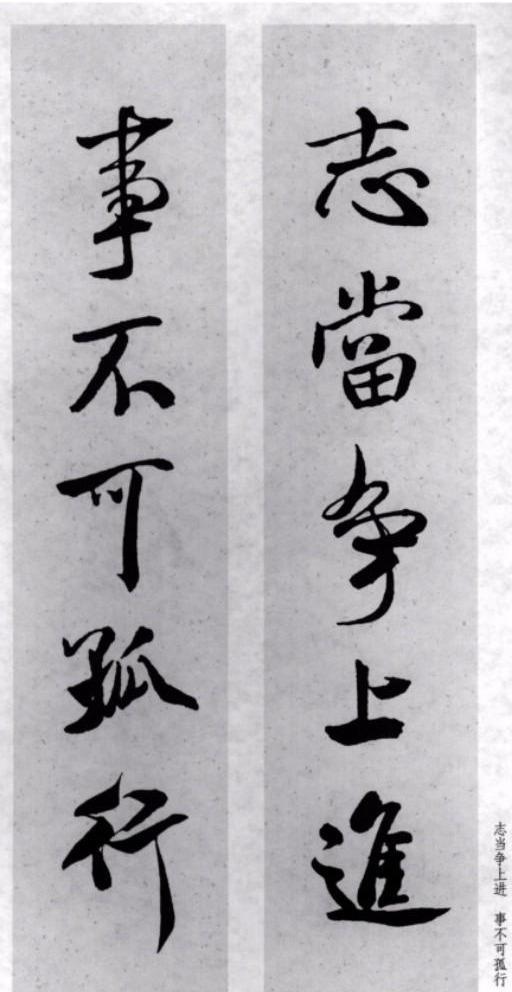 志當争上進
事不可孤行
志当争上进 事不可孤行